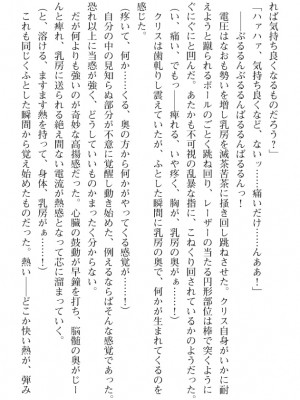 れば気持ち良くなるものだろう？」
「ハァハァ、気持ち良くなど、ないッ……痛いだけ……んああ！」
――ぶるんぶるんぶるんぶるんばるんばるんっ！
電圧はなおも勢いを増し乳房を滅茶苦茶に掻き回し跳ねさせた。クリス自身がいかに耐
えようと蹴られるボールのごとく跳ね回り、レーザーの当たる円形部位は棒で突くように
ぐにぐにと凹んだ。あたかも不可視の乱暴な指に、こねくり回されているかのようだった。
（い、痛い、でもっ……痺れる、いや、疼く、胸が、乳房の奥が……！）
クリスは歯軋りし震えていたが、ふとした瞬間に乳房の奥で、何かが生まれてくるのを
感じた。
（疼いて、何か……くる、奥の方から何かがやってくる感覚が……！）
自分の中の見知らぬ部分が不意に覚醒し動き始めた、例えるならばそんな感覚であった。
恐れ以上に当惑が強く、どうしていいものかまったく分からない。
だが何よりも強いのが奇妙な高揚感だった。心臓の鼓動が早鐘を打ち、脳髄の奥がじー
んと痺れ、乳房に送られる絶え間ない電流が熱感となって芯に溜まっていく。
（と、溶ける、ますます熱を持って、身体、乳房がぁ……！）
これも同じくふとした瞬間から覚え始めたものだった。熱い――どこか快い熱が、弾み